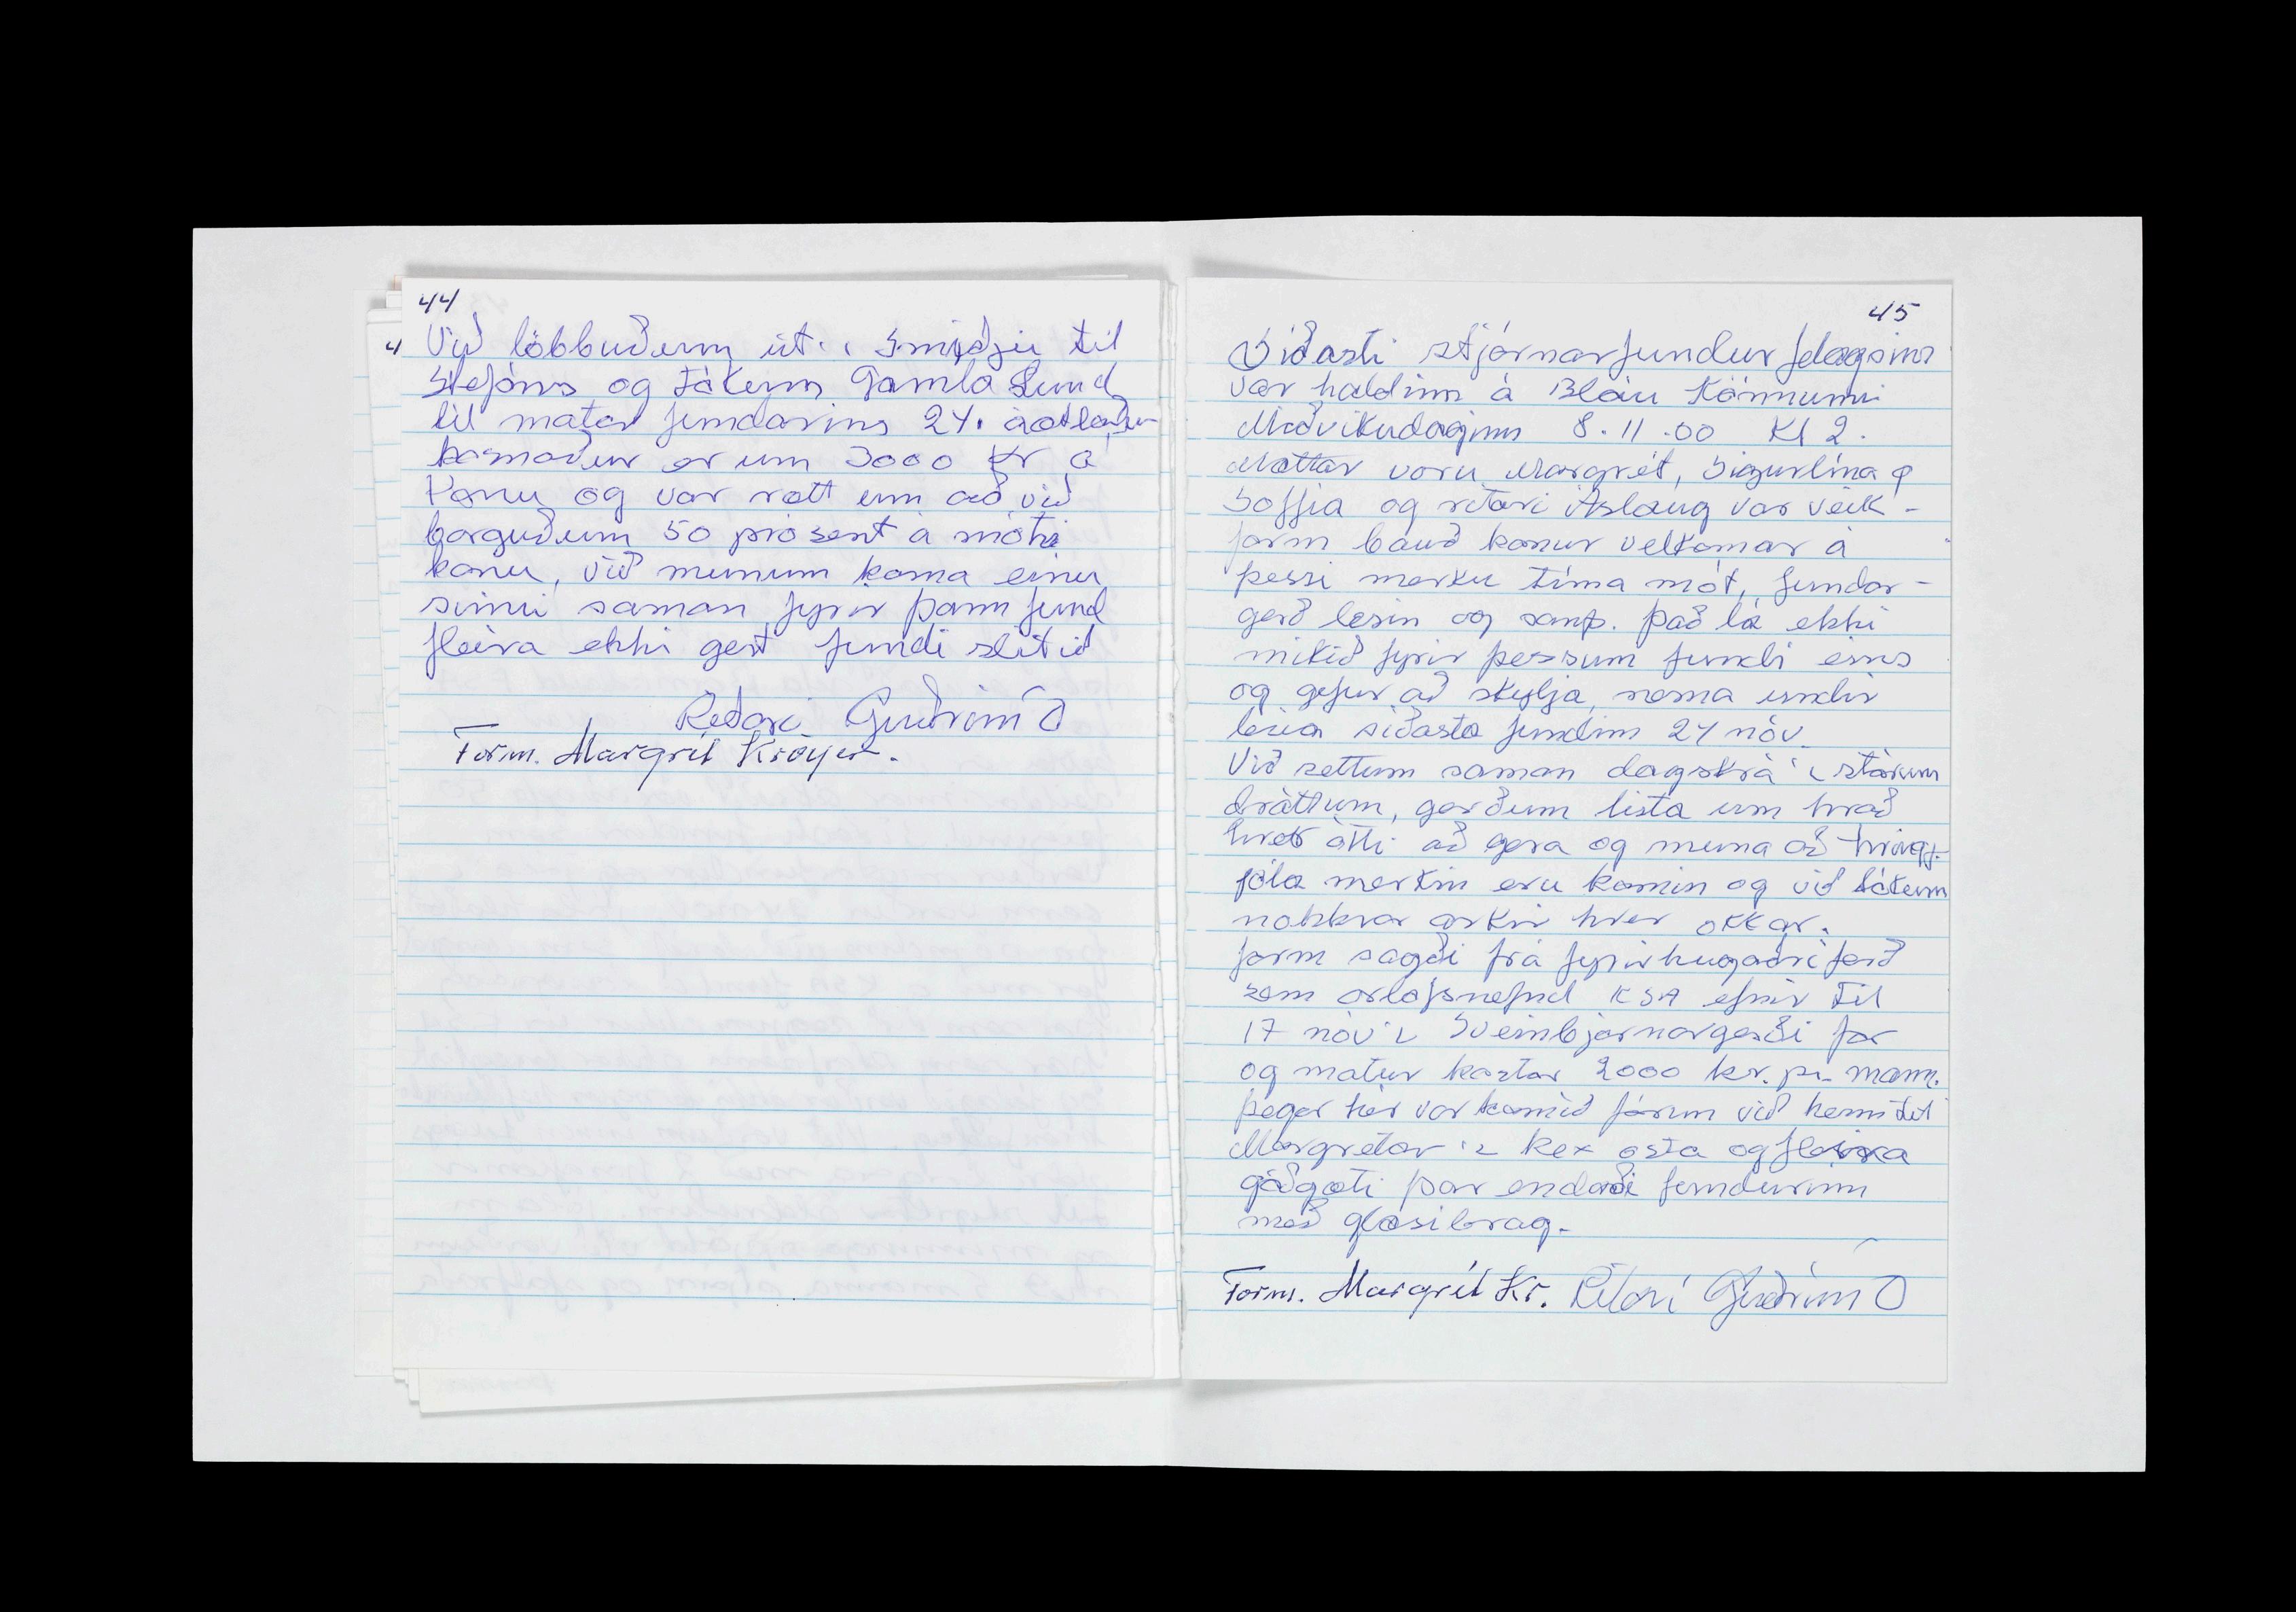 44
Við löbbuðum út í Smiðju til
Stefáns og tókum Gamla Lund
til matar fundarins 24. áætlaður
kosnaður er um 3000 kr á
konu og var rætt um að við
borguðum 50 prósent á móti
konu, við munum koma einu
sinni saman fyrir þann fund
fleira ekki gert fundi slitið
Ritari Guðrún Ó
Form. Margrét Kröyer.
45
Síðasti stjórnarfundur felagsins
var haldinn á Bláu Könnunni
Miðvikudaginn 8.11.00 Kl 2.
Mættar voru Margrét, Sigurlína og
Soffia og ritari Áslaug var veik -
form bauð konur velkomar á
þessi merku tíma mót, fundar-
gerð lesin og samþ. það lá ekki
mikið fyrir þessum fundi eins
og gefur að skylja, nema undir
búa síðasta fundinn 24 nóv.
Við settum saman dagskrá í stórum
dráttum, gerðum lista um hvað
hver átti að gera og muna að hringj.
jóla merkin eru komin og við tókum
nokkrar arkir hver okkar.
form sagði frá fyrirhugaðri ferð
sem orlofsnefnd KSA efnir til
17 nóv í Sveinbjarnargerði far
og matur kostar 2000 kr. pr. mann.
þegar hér var komið fórum við heim til
Margrétar í kex osta og fleira
góðgæti þar endaði fundurinn
með glæsibrag.
Form. Margrét Kr. Ritari Guðrún Ó